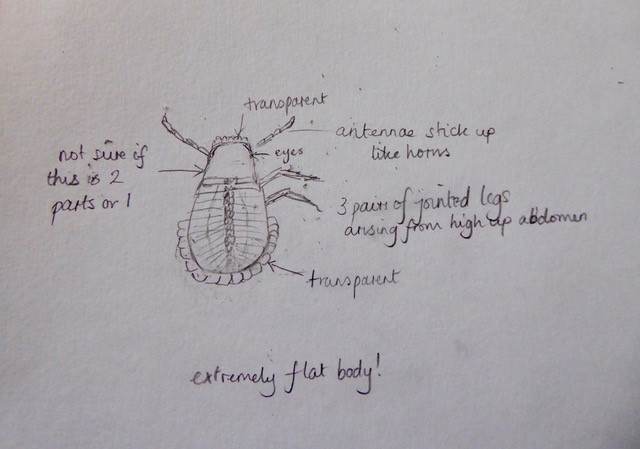 transparent
antennae stick up
like horns
eyes
not sure if
this is 2
parts or 1
3 pairs of jointed legs
arising from high up abdomen
transparent
extremely flat body!